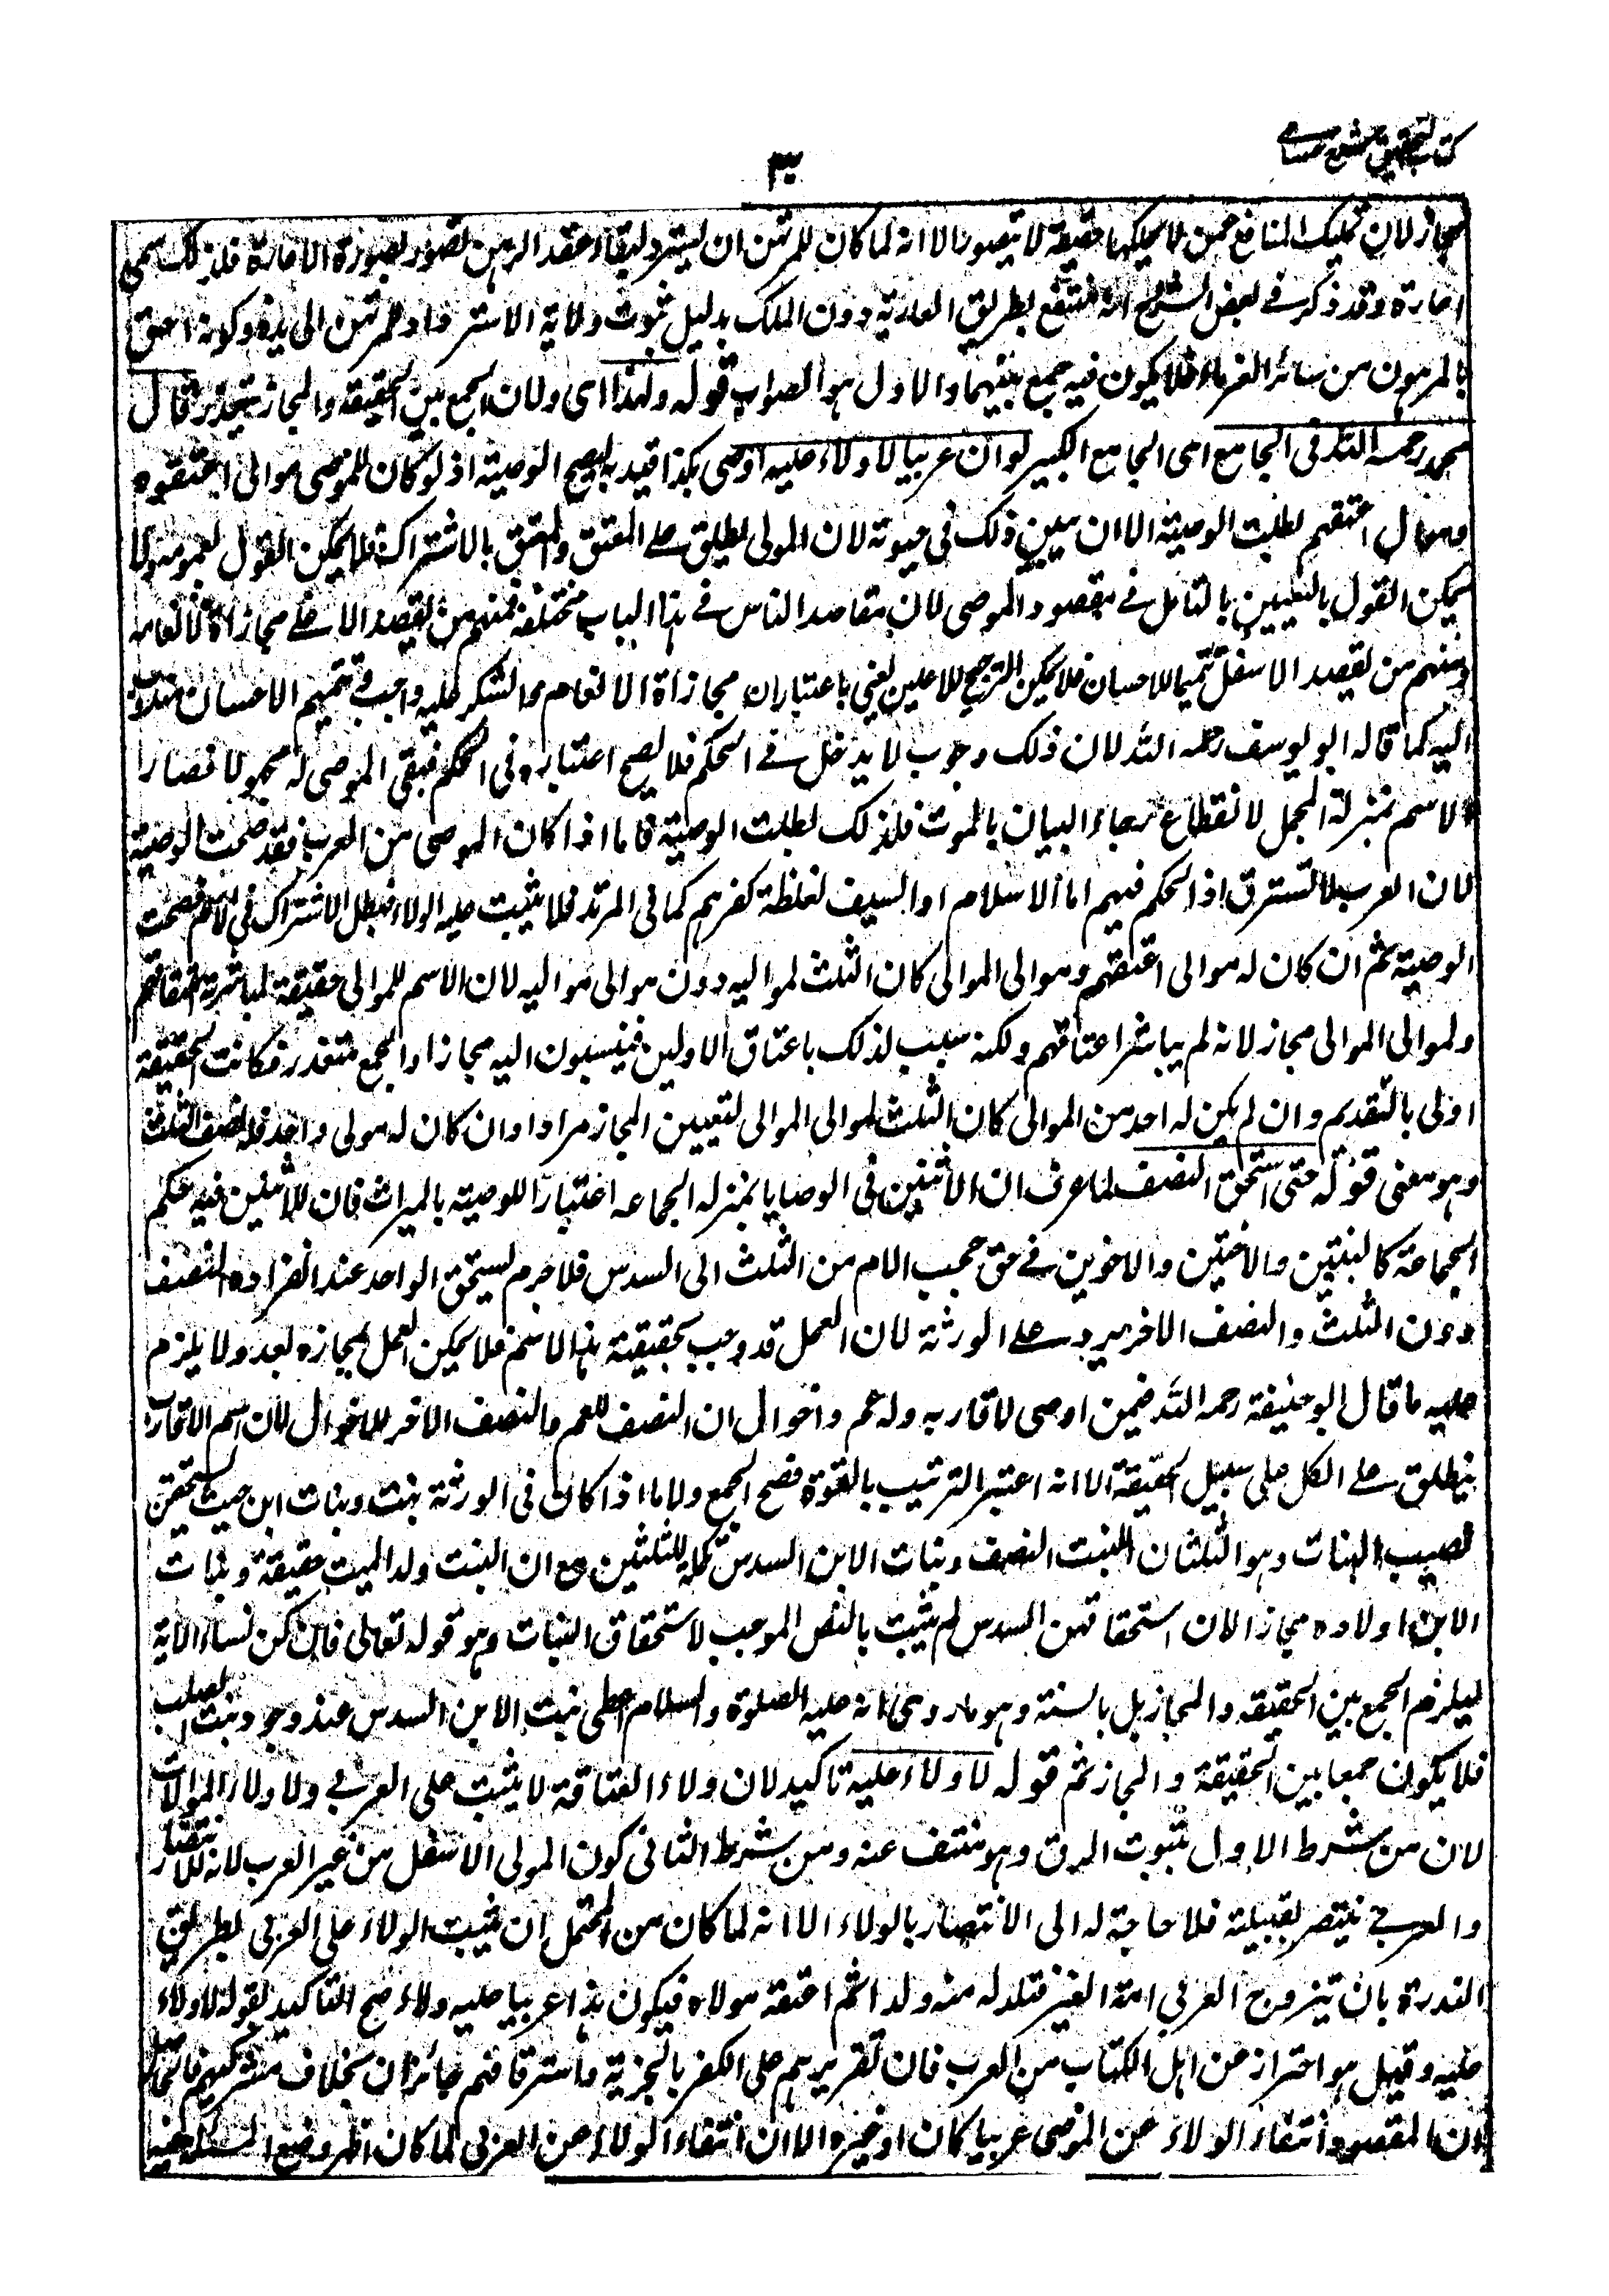 كتاب التحقيق شرح حسامى
٣٠
مجاز لان تمليك المنافع ممن لا يملكها حقيقة لا يتصور الا انه لما كان للمرتهن ان يسترد لبقاء عقد الرهن تصور بصورة الاعارة فلذلك سمى
اعارة وقد ذكر فى بعض الشروح انه منتفع بطريق العارية دون الملك بدليل ثبوت ولاية الاسترداد للمرتهن الى يده وكونه احق
بالمرهون من سائر الغرماء فلا يكون فيه جمع بينهما والاول هو الصواب قوله ولهذا اى ولان الجمع بين الحقيقة والمجاز متعذر قال
محمد رحمه الله فى الجامع اى الجامع الكبير لو ان عربيا لا ولاء عليه اوصى بكذا قيد به ليصح الوصية اذ لو كان للموصى موالى اعتقوه
وموال اعتقهم بطلت الوصية الا ان يبين ذلك فى حيوته لان المولى يطلق على المعتق والمعتق بالاشتراك فلا يمكن القول بعمومه ولا
يمكن القول بالتعيين بالتامل فى مقصود الموصى لان مقاصد الناس فى هذا الباب مختلفة فمنهم من يقصد الاعلى مجازاة لانعامه
ومنهم من يقصد الاسفل تتميما للاحسان فلا يمكن الترجيح للاعلين يعنى باعتبار ان مجازاة الانعام والشكر عليه واجب وتتميم الاحسان مندوب
اليه كما قاله ابو يوسف رحمه الله لان ذلك وجوب لا يدخل فى الحكم فلا يصح اعتباره فى الحكم فبقى الموصى له مجهولا فصار
الاسم بمنزلة المجمل لانقطاع رجاء البيان بالموت فلذلك بطلت الوصية فاما اذا كان الموصى من العرب فقد صحت الوصية
لان العرب لا تسترق اذ الحكم فيهم اما الاسلام او السيف لغلظة كفرهم كما فى المرتد فلا يثبت عليه الولاء فبطل الاشتراك فى الاسم فصحت
الوصية ثم ان كان له موالى اعتقهم وموالى الموالى كان الثلث لمواليه دون موالى مواليه لان الاسم للموالى حقيقة لمباشرته اعتاقهم
ولموالى الموالى مجاز لانه لم يباشر اعتاقهم ولكنه سبب لذلك باعتاق الاولين فينسبون اليه مجازا والجمع متعذر فكانت الحقيقة
اولى بالتقديم وان لم يكن له احد من الموالى كان الثلث لموالى الموالى لتعيين المجاز مرادا وان كان له مولى واحد فله نصف الثلث
وهو معنى قوله حتى استحق النصف لما عرف ان الاثنين فى الوصايا بمنزلة الجماعة اعتبارا للوصية بالميراث فان للاثنين فيه حكم
الجماعة كالبنتين والاختين والاخوين فى حق حجب الام من الثلث الى السدس فلا جرم يستحق الواحد عند انفراده النصف
دون الثلث والنصف الاخر يرد على الورثة لان العمل قد وجب بحقيقة هذا الاسم فلا يمكن العمل بمجازه بعد ولا يلزم
عليه ما قال ابو حنيفة رحمه الله فيمن اوصى لاقاربه وله عم واخوال ان النصف للعم والنصف الاخر للاخوال لان اسم الاقارب
ينطلق على الكل على سبيل الحقيقة الا انه اعتبر الترتيب بالقوة فصح الجمع ولا ما اذا كان فى الورثة بنت وبنات ابن حيث يستحقن
نصيب البنات وهو الثلثان البنت النصف وبنات الابن السدس تكملة للثلثين مع ان البنت ولد الميت حقيقة وبنات
الابن اولاده مجازا لان استحقاقهن السدس لم يثبت بالنص الموجب لاستحقاق البنات وهو قوله تعالى فان كن نساء الاية
ليلزم الجمع بين الحقيقة والمجاز بل بالسنة وهو ما روى انه عليه الصلوة والسلام اعطى بنت الابن السدس عند وجود بنت الصلب
فلا يكون جمعا بين الحقيقة والمجاز ثم قوله لا ولاء عليه تاكيد لان ولاء العتاقة لا يثبت على العربى ولا ولاء الموالات
لان من شرط الاول ثبوت الرق وهو منتف عنه ومن شرط الثانى كون المولى الاسفل من غير العرب لانه للانتصار
والعربى ينتصر بقبيلته فلا حاجة له الى الانتصار بالولاء الا انه لما كان من المحتمل ان يثبت الولاء على العربى بطريق
الندرة بان يتزوج العربى امة الغير فتلد له منه ولدا ثم اعتقه مولاه فيكون هذا عربيا عليه ولاء صح التاكيد بقوله لا ولاء
عليه وقيل هو احتراز عن اهل الكتاب من العرب فان تقريرهم على الكفر بالجزية واسترقاقهم جائزان بخلاف مشركيهم فالحاصل
ان المقصود انتفاء الولاء عن الموصى عربيا كان او غيره الا ان انتفاء الولاء عن العربى لما كان اظهر وضع المسئلة فيه